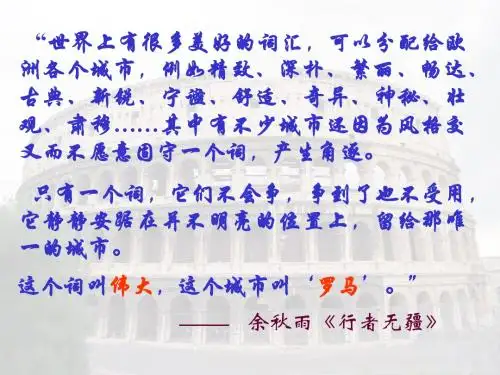 “世界上有很多美好的词汇，可以分配给欧
洲各个城市，例如精致、深朴、繁丽、畅达、
古典、新锐、宁谧、舒适、奇异、神秘、壮
观、肃穆……其中有不少城市还因为风格交
叉而不愿意固守一个词，产生角逐。
只有一个词，它们不会争，争到了也不受用，
它静静安踞在并不明亮的位置上，留给那唯
一的城市。
这个词叫伟大，这个城市叫‘罗马’。”
—— 余秋雨《行者无疆》